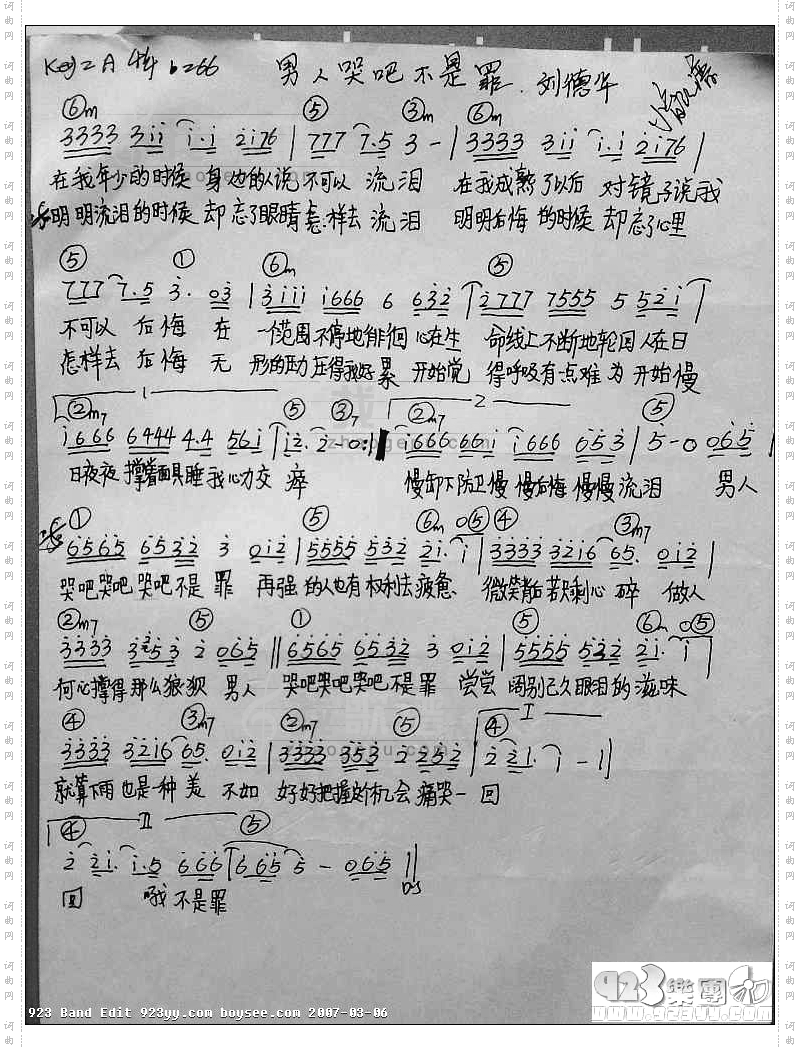 Key=A 4/4 ♭=66 男人哭吧不是罪. 刘德华
⑥m ⑤ ③m ⑥m
3333 3ii i.i 2i76 | 777 7.5 3 - | 3333 3ii i.i 2i76 |
在我年少的时候 身边的人说 不可以 流泪 在我成熟了以后 对镜子说我
明明流泪的时候 却忘了眼睛怎样去 流泪 明明后悔的时候 却忘了心里
⑤ ① ⑥m ⑤
777 7.5 3. 03 | 3iii i666 6 632 | 2777 7555 5 52i |
不可以 后悔 在 一个范围不停地徘徊 心在生 命线上不断地轮回人在日
怎样去 后悔 无 形的压力压得我好累 开始觉 得呼吸有点难为 开始慢
1 2
②m7 ⑤ ③7 ②m7 ⑤
i666 6444 4.4 56i | i2. 2 - 0:| i666 66i i666 053 | 5 - 0 065 |
日夜夜 撑着面具睡我心力交 瘁 慢卸下防卫慢 慢后悔 慢慢流泪 男人
① ⑤ ⑥m 0⑤ ④ ③m7
6565 6532 3 0i2 | 5555 532 2i. i | 3333 32i6 65. 0i2 |
哭吧哭吧 哭吧不是 罪 再强 的人也有 权利去疲惫 微笑背后若只剩心 碎 做人
②m7 ⑤ ① ⑤ ⑥m 0⑤
3333 3253 2 065 || 6565 6532 3 0i2 | 5555 532 2i. i |
何必撑得那么狼狈 男人 哭吧哭吧哭吧不是 罪 尝尝 阔别已久眼泪的滋味
④ ③m7 ②m7 ⑤ ④ I
3333 32i6 65. 0i2 | 3333 353 2 2252 | 2 2i. i - i |
就算下雨也是一种 美 不如 好好把握这个机会 痛哭一 回
④ II ⑤
2 2i. i.5 666 | 665 5 - 065 ||
回 哦 不是罪 DS
zhaogepu.com
923樂團
www.923yy.com
923 Band Edit 923yy.com boysee.com 2007-03-06
词曲网